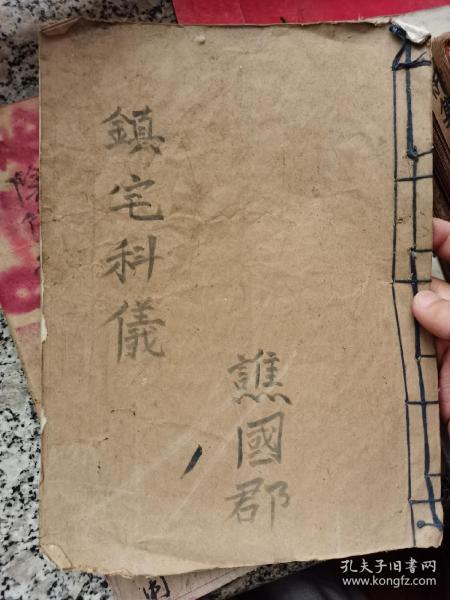 鎮宅科儀
譙國郡
孔夫子旧书网
www.kongfz.com